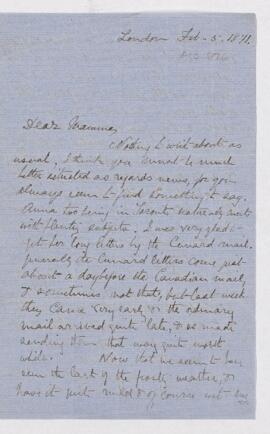 London Feb. 5. 1871.
Dear Mamma,
Nothing to write about as
usual, I think you must be much
better situated as regards news, for you
always seem to find something to say.
Anna too being in Toronto naturally meets
with plenty subjects. I was very glad to
get her long letters by the Cunard mail.
Generally the Cunard letters come just
about a day before the Canadian mail,
& sometimes not that, but last week
they came very early & the ordinary
mail arrived quite late, & so made
sending them that way quite worth
while. Now that we seem to have
seen the last of the frosty weather, &
have it quite mild & of course wet